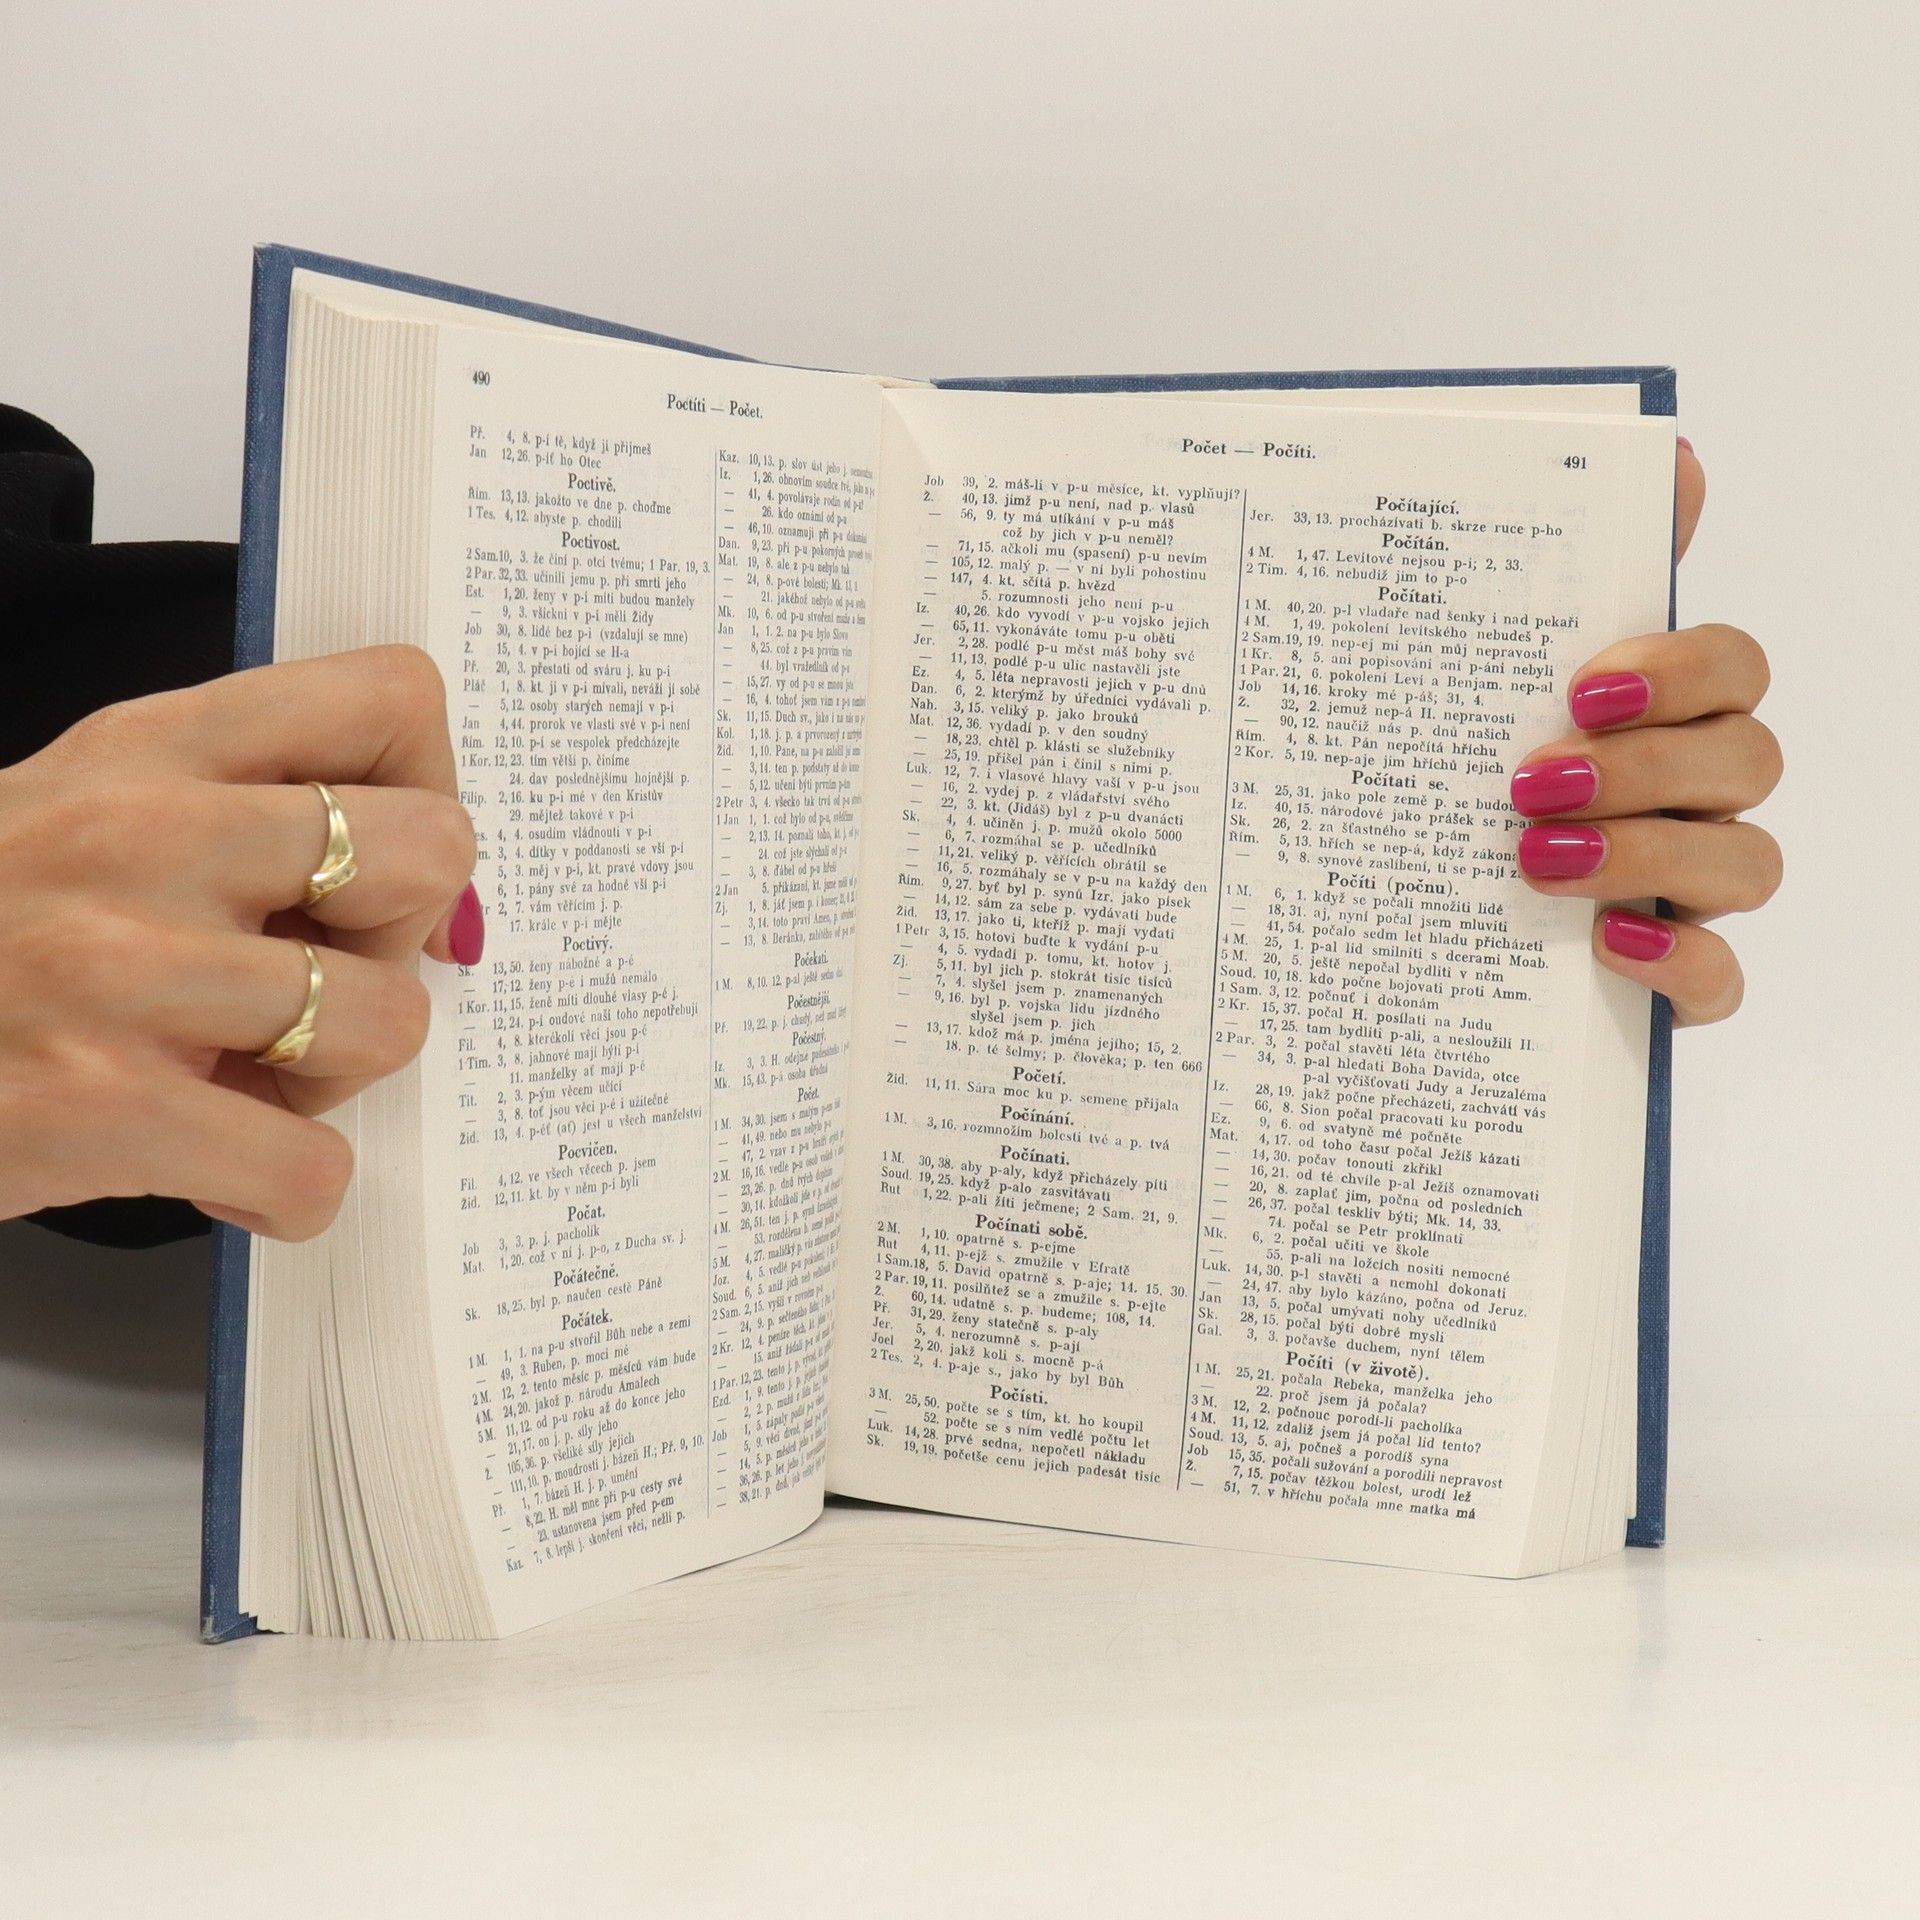 490
Poctíti — Počet.
Př. 4, 8. p-í tě, když ji přijmeš
Jan 12,26. p-íť ho Otec
Poctivě.
Řím. 13,13. jakožto ve dne p. choďme
1 Tes. 4,12. abyste p. chodili
Poctivost.
2 Sam. 10, 3. že činí p. otci tvému; 1 Par. 19, 3.
2 Par. 32,33. učinili jemu p. při smrti jeho
Est. 1,20. ženy v p-i míti budou manžely
— 9, 3. všickni v p-i měli Židy
Job 30, 8. lidé bez p-i (vzdalují se mne)
Ž. 15, 4. v p-i bojící se H-a
Př. 20, 3. přestati od sváru j. ku p-i
Pláč 1, 8. kt. ji v p-i mívali, neváží jí sobě
— 5,12. osoby starých nemají v p-i
Jan 4,44. prorok ve vlasti své v p-i není
Řím. 12,10. p-í se vespolek předcházejte
1 Kor. 12,23. tím větší p. činíme
— 24. dav poslednějšímu hojnější p.
Filip. 2,16. ku p-i mé v den Kristův
29. mějtež takové v p-i
4, 4. osudím vládnouti v p-i
3, 4. dítky v poddanosti se vší p-í
5, 3. měj v p-i, kt. pravé vdovy jsou
6, 1. pány své za hodné vší p-i
2, 7. vám věřícím j. p.
17. krále v p-i mějte
Poctivý.
Sk. 13,50. ženy nábožné a p-é
— 17,12. ženy p-é i mužů nemálo
1 Kor. 11,15. ženě míti dlouhé vlasy p-é j.
— 12,24. p-í oudové naši toho nepotřebují
Fil. 4, 8. kterékoli věci jsou p-é
1 Tim. 3, 8. jahnové mají býti p-í
— 11. manželky ať mají p-é
Tit. 2, 3. p-ým věcem učící
— 3, 8. toť jsou věci p-é i užitečné
Žid. 13, 4. p-éť (ať) jest u všech manželství
Pocvičen.
Fil. 4,12. ve všech věcech p. jsem
Žid. 12,11. kt. by v něm p-i byli
Počat.
Job 3, 3. p. j. pacholík
Mat. 1,20. což v ní j. p-o, z Ducha sv. j.
Počátečně.
Sk. 18,25. byl p. naučen cestě Páně
Počátek.
1 M. 1, 1. na p-u stvořil Bůh nebe a zemi
— 49, 3. Ruben, p. moci mé
2 M. 12, 2. tento měsíc p. měsíců vám bude
4 M. 24,20. jakož p. národu Amalech
5 M. 11,12. od p-u roku až do konce jeho
— 21,17. on j. p. síly jeho
Ž. 105,36. p. všeliké síly jejich
— 111,10. p. moudrosti j. bázeň H.; Př. 9, 10.
Př. 1, 7. bázeň H. j. p. umění
— 8,22. H. měl mne při p-u cesty své
— 23. ustanovena jsem před p-em
Kaz. 7, 8. lepší j. skončení věci, nežli p.
Kaz. 10,13. p. slov úst jeho j.
Iz. 1,26. obnovím soudce tvé, jako
— 41, 4. povolávaje rodin od p-u?
— 26. kdo oznámí od p-u
— 46,10. oznamuji při p-u
Dan. 9,23. při p-u pokorných
Mat. 19, 8. ale z p-u nebylo tak
— 24, 8. p-ové bolesti; Mk. 13, 8.
— 21. jakéhož nebylo od p-u
Mk. 10, 6. od p-u stvoření
Jan 1, 1. 2. na p-u bylo Slovo
— 8,25. což z p-u pravím vám
— 44. byl vražedlník od p-u
— 15,27. vy od p-u se mnou jste
— 16, 4. tohoť jsem vám z p-u
Sk. 11,15. Duch sv., jako i na nás
Kol. 1,18. j. p. a prvorozený z
Žid. 1,10. Pane, na p-u založil
— 3,14. ten p. podstaty až do
— 5,12. učeni býti prvním
2 Petr 3, 4. všecko tak trvá od p-u
1 Jan 1, 1. což bylo od p-u,
— 2,13. 14. poznali toho, kt. j. od p-u
— 24. což jste slýchali od p-u
— 3, 8. ďábel od p-u hřeší
2 Jan 5. přikázání, kt. jsme měli od
Zj. 1, 8. jáť jsem p. i konec; 21, 6.
— 3,14. toto praví Amen, p.
— 13, 8. Beránka, zabitého od p-u
Počekati.
1 M. 8,10. 12. p-al ještě sedm dní
Počestnější.
Př. 19,22. p. j. chudý, než muž lživý
Počestný.
Iz. 3, 3. H. odejme
Mk. 15,43. p-á osoba úřední
Počet.
1 M. 34,30. jsem s malým p-em
— 41,49. nebo mu nebylo p-u
— 47, 2. vzav z p-u bratří
2 M. 16,16. vedle p-u osob
— 23,26. p. dnů tvých doplním
— 30,14. kdožkoli jde v p.
4 M. 26,51. ten j. p. synů Izraelských
— 53. rozdělena b. země
5 M. 4,27. maličký p. vás
Joz. 4, 5. vedlé p-u pokolení
Soud. 6, 5. aniž jich neb velbloudů
2 Sam. 2,15. vyšli v rovném p-u
— 24, 9. p. sečteného lidu
2 Kr. 12, 4. peníze těch, kt. jdou
— 15. aniž žádali p-u od
1 Par. 12,23. tento j. p.
Ezd. 1, 9. tento j. p.
— 2, 2. p. mužů z lidu
Job 1, 5. zápaly podlé p-u
— 5, 9. věci divné,
— 14, 5. p. měsíců jeho
— 36,26. p. let jeho
— 38,21. p. dnů,
Počet — Počíti.
491
Job 39, 2. máš-li v p-u měsíce, kt. vyplňují?
Ž. 40, 13. jimž p-u není, nad p. vlasů
— 56, 9. ty má utíkání v p-u máš
což by jich v p-u neměl?
— 71, 15. ačkoli mu (spasení) p-u nevím
— 105, 12. malý p. — v ní byli pohostinu
— 147, 4. kt. sčítá p. hvězd
— 5. rozumnosti jeho není p-u
Iz. 40, 26. kdo vyvodí v p-u vojsko jejich
— 65, 11. vykonáváte tomu p-u oběti
Jer. 2, 28. podlé p-u měst máš bohy své
— 11, 13. podlé p-u ulic nastavěli jste
Ez. 4, 5. léta nepravosti jejich v p-u dnů
Dan. 6, 2. kterýmž by úředníci vydávali p.
Nah. 3, 15. veliký p. jako brouků
Mat. 12, 36. vydadí p. v den soudný
— 18, 23. chtěl p. klásti se služebníky
— 25, 19. přišel pán i činil s nimi p.
Luk. 12, 7. i vlasové hlavy vaší v p-u jsou
— 16, 2. vydej p. z vládařství svého
— 22, 3. kt. (Jidáš) byl z p-u dvanácti
Sk. 4, 4. učiněn j. p. mužů okolo 5000
— 6, 7. rozmáhal se p. učedlníků
— 11, 21. veliký p. věřících obrátil se
— 16, 5. rozmáhaly se v p-u na každý den
Řím. 9, 27. byť byl p. synů Izr. jako písek
— 14, 12. sám za sebe p. vydávati bude
Žid. 13, 17. jako ti, kteříž p. mají vydati
1 Petr 3, 15. hotovi buďte k vydání p-u
— 4, 5. vydadí p. tomu, kt. hotov j.
Zj. 5, 11. byl jich p. stokrát tisíc tisíců
— 7, 4. slyšel jsem p. znamenaných
— 9, 16. byl p. vojska lidu jízdného
slyšel jsem p. jich
— 13, 17. kdož má p. jména jejího; 15, 2.
— 18. p. té šelmy; p. člověka; p. ten 666
Početí.
Žid. 11, 11. Sára moc ku p. semene přijala
Počínání.
1 M. 3, 16. rozmnožím bolesti tvé a p. tvá
Počínati.
1 M. 30, 38. aby p-aly, když přicházely píti
Soud. 19, 25. když p-alo zasvitávati
Rut 1, 22. p-ali žíti ječmene; 2 Sam. 21, 9.
Počínati sobě.
2 M. 1, 10. opatrně s. p-ejme
Rut 4, 11. p-ejž s. zmužile v Efratě
1 Sam. 18, 5. David opatrně s. p-aje; 14. 15. 30.
2 Par. 19, 11. posilňtež se a zmužile s. p-ejte
Ž. 60, 14. udatně s. p. budeme; 108, 14.
Př. 31, 29. ženy statečně s. p-aly
Jer. 5, 4. nerozumně s. p-ají
Joel 2, 20. jakž koli s. mocně p-á
2 Tes. 2, 4. p-aje s., jako by byl Bůh
Počísti.
3 M. 25, 50. počte se s tím, kt. ho koupil
— 52. počte se s ním vedlé počtu let
Luk. 14, 28. prvé sedna, nepočetl nákladu
Sk. 19, 19. početše cenu jejich padesát tisíc
Počítající.
Jer. 33, 13. procházívati b. skrze ruce p-ho
Počítán.
4 M. 1, 47. Levítové nejsou p-i; 2, 33.
2 Tim. 4, 16. nebudiž jim to p-o
Počítati.
1 M. 40, 20. p-l vladaře nad šenky i nad pekaři
4 M. 1, 49. pokolení levítského nebudeš p.
2 Sam. 19, 19. nep-ej mi pán můj nepravosti
1 Kr. 8, 5. ani popisováni ani p-áni nebyli
1 Par. 21, 6. pokolení Levi a Benjam. nep-al
Job 14, 16. kroky mé p-áš; 31, 4.
Ž. 32, 2. jemuž nep-á H. nepravosti
— 90, 12. naučiž nás p. dnů našich
Řím. 4, 8. kt. Pán nepočítá hříchu
2 Kor. 5, 19. nep-aje jim hříchů jejich
Počítati se.
3 M. 25, 31. jako pole země p. se budou
Iz. 40, 15. národové jako prášek se p-ají
Sk. 26, 2. za šťastného se p-ám
Řím. 5, 13. hřích se nep-á, když zákona
— 9, 8. synové zaslíbení, ti se p-ají
Počíti (počnu).
1 M. 6, 1. když se počali množiti lidé
— 18, 31. aj, nyní počal jsem mluviti
— 41, 54. počalo sedm let hladu přicházeti
4 M. 25, 1. p-al lid smilniti s dcerami Moab.
5 M. 20, 5. ještě nepočal bydliti v něm
Soud. 10, 18. kdo počne bojovati proti Amm.
1 Sam. 3, 12. počnuť i dokonám
2 Kr. 15, 37. počal H. posílati na Judu
— 17, 25. tam bydliti p-ali, a nesloužili H.
2 Par. 3, 2. počal stavěti léta čtvrtého
— 34, 3. p-al hledati Boha Davida, otce
p-al vyčišťovati Judy a Jeruzaléma
Iz. 28, 19. jakž počne přecházeti, zachvátí vás
— 66, 8. Sion počal pracovati ku porodu
Ez. 9, 6. od svatyně mé počněte
Mat. 4, 17. od toho času počal Ježíš kázati
— 14, 30. počav tonouti zkřikl
— 16, 21. od té chvíle p-al Ježíš oznamovati
— 20, 8. zaplať jim, počna od posledních
— 26, 37. počal teskliv býti; Mk. 14, 33.
— 74. počal se Petr proklínati
Mk. 6, 2. počal učiti ve škole
— 55. p-ali na ložcích nositi nemocné
Luk. 14, 30. p-l stavěti a nemohl dokonati
— 24, 47. aby bylo kázáno, počna od Jeruz.
Jan 13, 5. počal umývati nohy učedlníků
Sk. 28, 15. počal býti dobré mysli
Gal. 3, 3. počavše duchem, nyní tělem
Počíti (v životě).
1 M. 25, 21. počala Rebeka, manželka jeho
— 22. proč jsem já počala?
3 M. 12, 2. počnouc porodí-li pacholíka
4 M. 11, 12. zdaliž jsem já počal lid tento?
Soud. 13, 5. aj, počneš a porodíš syna
Job 15, 35. počali sužování a porodili nepravost
Ž. 7, 15. počav těžkou bolest, urodí lež
— 51, 7. v hříchu počala mne matka má